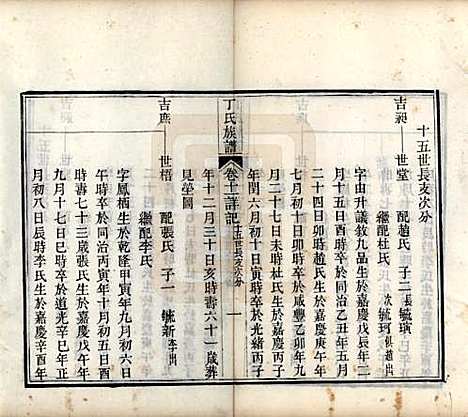 十五世長支次分
吉昶
世堂 配趙氏 子二 長毓璜
繼配杜氏 次毓珂俱趙出
字由升議敘九品生於嘉慶戊辰年二
月十五日辰時卒於同治乙丑年五月
二十四日卯時趙氏生於嘉慶庚午年
七月初十日辰時卒於咸豐乙卯年九
月二十七日未時杜氏生於嘉慶丙子
年閏六月初十日寅時卒於光緒丙子
丁氏族譜
卷十詳記
十五世長支次分
一
年十二月三十日亥時壽六十一歲葬
見塋圖
吉庶
世悟 配張氏 子一 毓新李出
繼配李氏
字鳳栖生於乾隆甲寅年九月初六日
午時卒於同治丙寅年十月初五日酉
時壽七十三歲張氏生於嘉慶丁巳年
九月十七日巳時卒於道光辛巳年正
月初八日辰時李氏生於嘉慶辛酉年